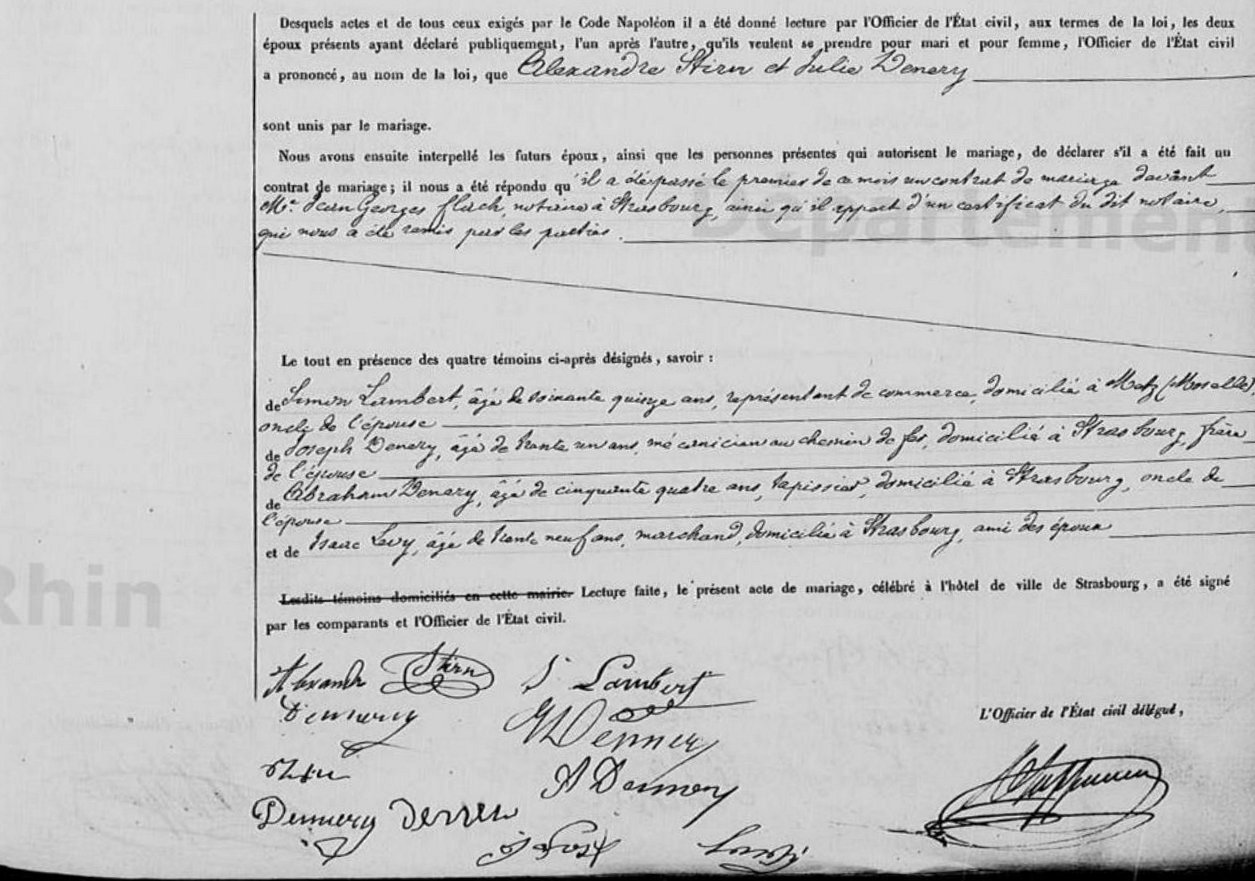 Desquels actes et de tous ceux exigés par le Code Napoléon il a été donné lecture par l'Officier de l'État civil, aux termes de la loi, les deux
époux présents ayant déclaré publiquement, l'un après l'autre, qu'ils veulent se prendre pour mari et pour femme, l'Officier de l'État civil
a prononcé, au nom de la loi, que Alexandre Stirn et Julie Denery
sont unis par le mariage.
Nous avons ensuite interpellé les futurs époux, ainsi que les personnes présentes qui autorisent le mariage, de déclarer s'il a été fait un
contrat de mariage; il nous a été répondu qu'il a été passé le premier de ce mois un contrat de mariage devant
Me. Jean Georges Flach, notaire à Strasbourg, ainsi qu'il appert d'un certificat du dit notaire,
qui nous a été remis par les parties.
Département
Le tout en présence des quatre témoins ci-après désignés, savoir :
de Simon Lambert, âgé de soixante quinze ans, représentant de commerce, domicilié à Metz (Moselle),
oncle de l'épouse
de Joseph Denery, âgé de trente un ans, mécanicien au chemin de fer, domicilié à Strasbourg, frère
de l'épouse
de Abraham Denery, âgé de cinquante quatre ans, tapissier, domicilié à Strasbourg, oncle de
l'épouse
et de Isaac Levy, âgé de trente neuf ans, marchand, domicilié à Strasbourg, ami des époux
Rhin
Lesdits témoins domiciliés en cette mairie. Lecture faite, le présent acte de mariage, célébré à l'hôtel de ville de Strasbourg, a été signé
par les comparants et l'Officier de l'État civil.
Alexandre Stirn S Lambert
Dennery
L'Officier de l'État civil délégué,
Dennery
Stirn
A Dennery
Dennery